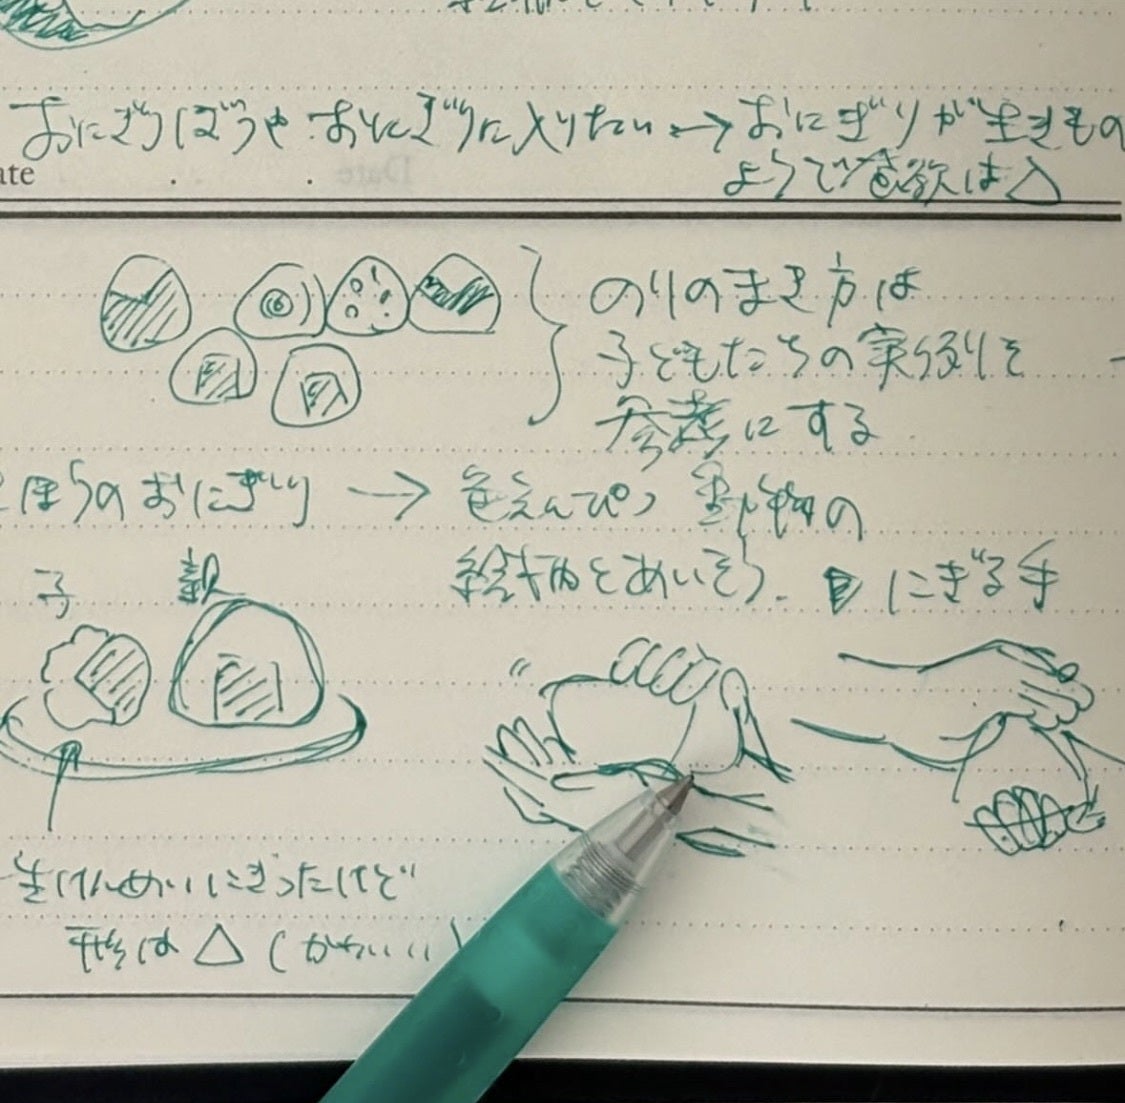 おにぎりぼうや おにぎりに入りたい → おにぎりが生きもの
ようで食欲は△
ate
Date
のりのまき方は
子どもたちの実例を
参考にする
ほうのおにぎり → 色えんぴつ 動物の
絵柄とあいそう. にぎる手
子 親
生けんめいにぎったけど
形は △ (かわいい